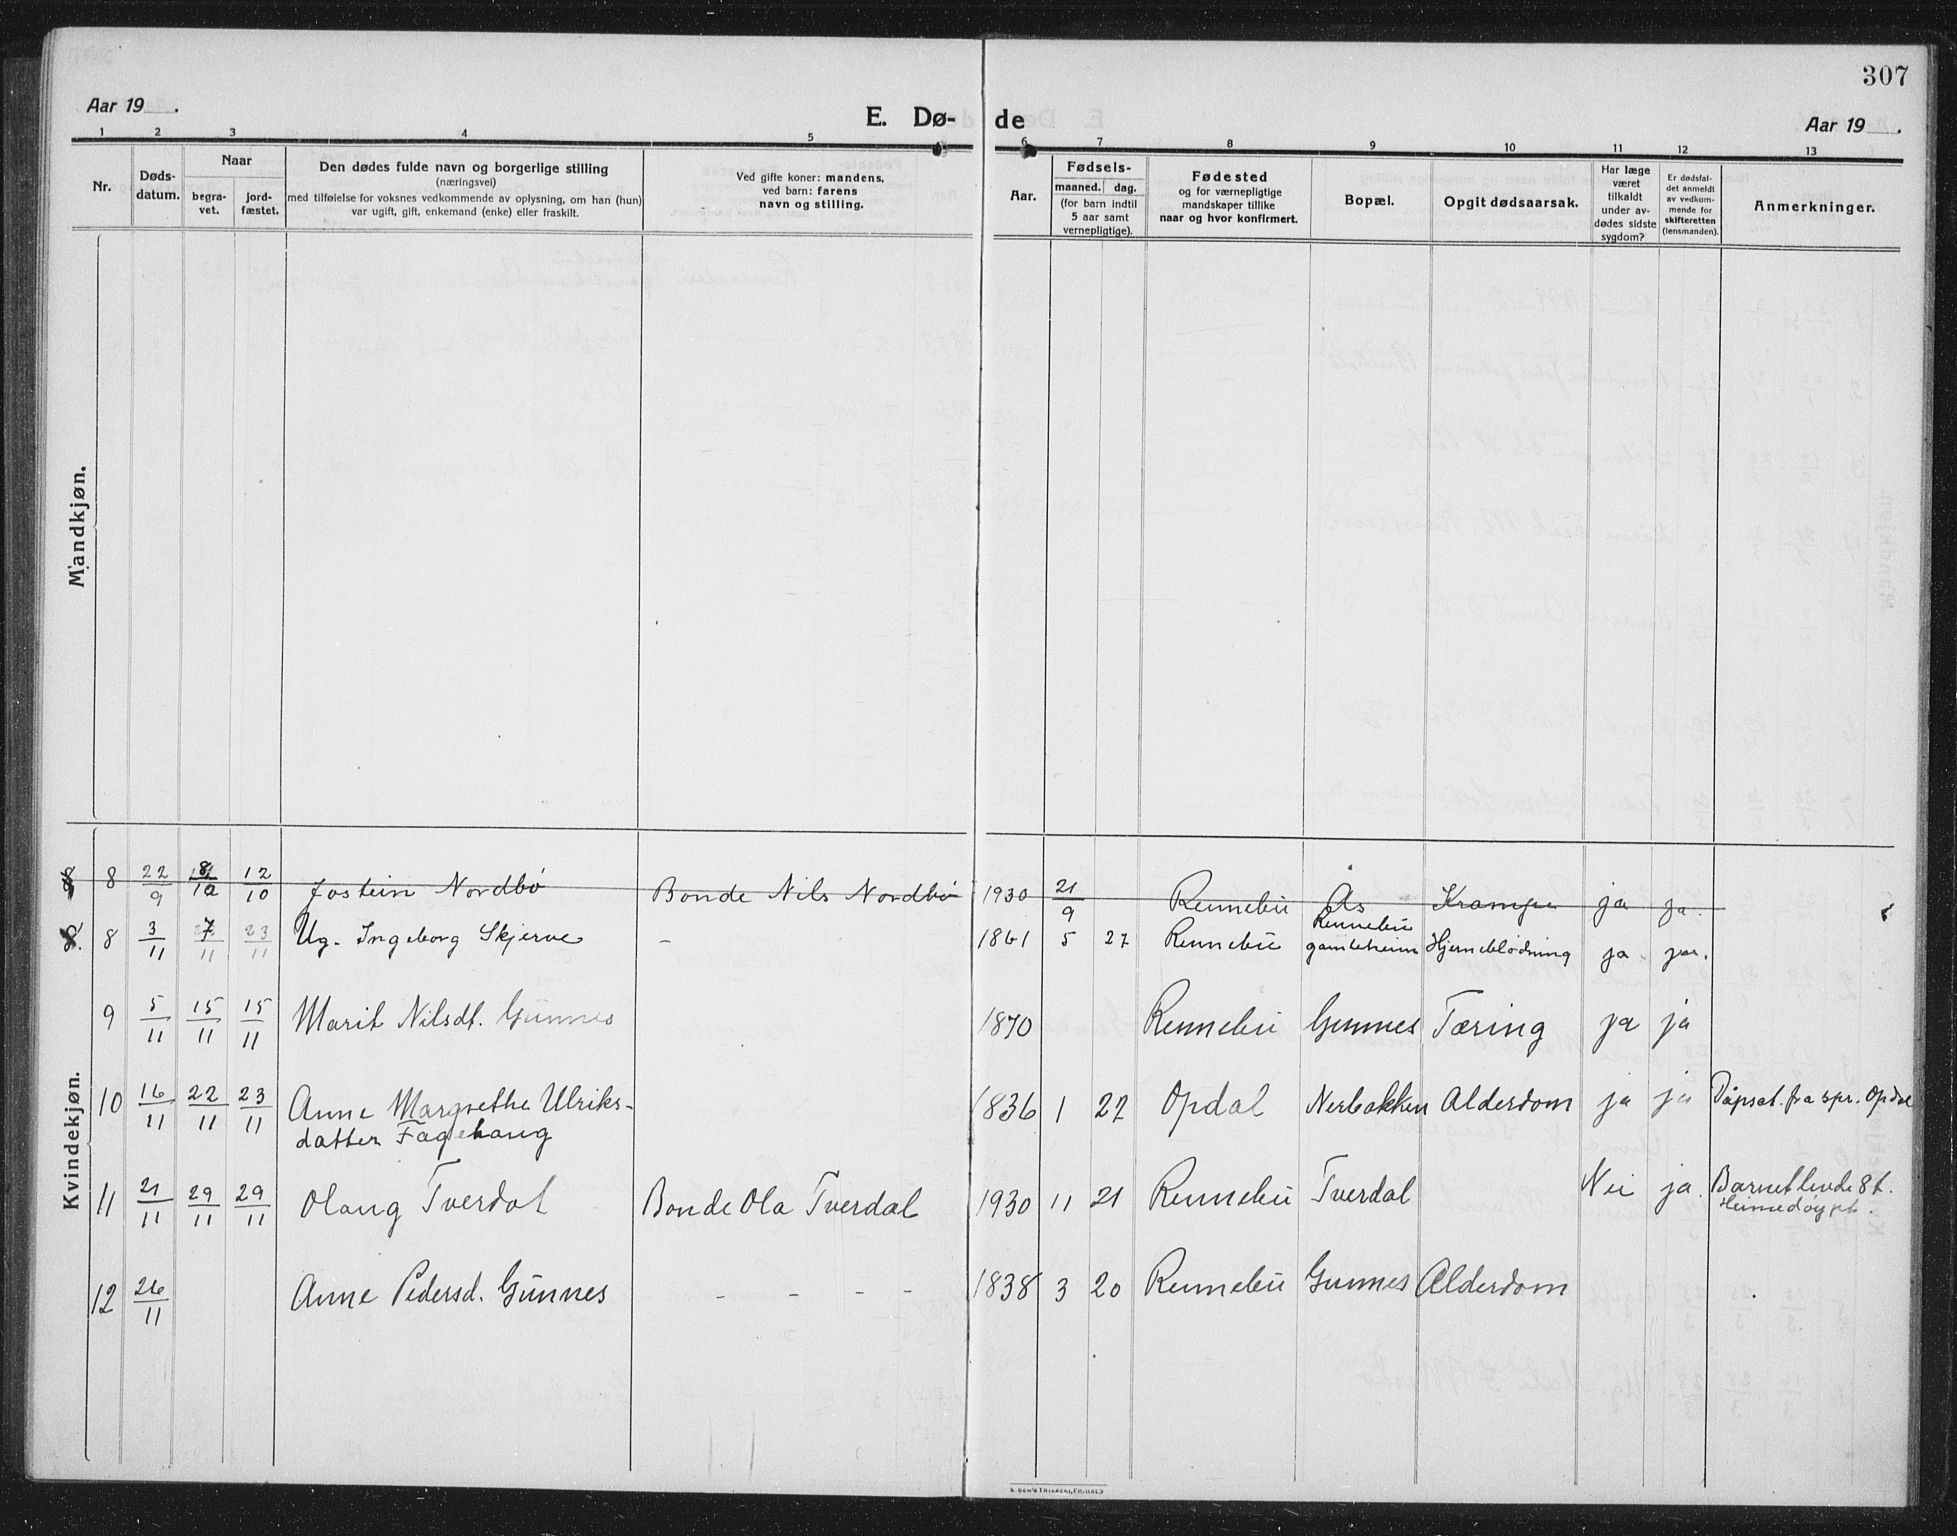 307
Aar 19 .
E. Dø- de
Aar 19 .
1 2 3 4 5 6 7 8 9 10 11 12 13
Nr.
Døds-
datum.
Naar
begra-
vet.
jord-
fæstet.
Den dødes fulde navn og borgerlige stilling
(næringsvei)
med tilføielse for voksnes vedkommende av oplysning, om han (hun)
var ugift, gift, enkemand (enke) eller fraskilt.
Ved gifte koner: mandens,
ved barn: farens
navn og stilling.
Aar.
Fødsels-
maaned. dag.
(for barn indtil
5 aar samt
vernepligtige).
Fødested
og for værnepligtige
mandskaper tillike
naar og hvor konfirmert.
Bopæl.
Opgit dødsaarsak.
Har læge
været
tilkaldt
under av-
dødes sidste
sygdom?
Er dødsfal-
det anmeldt
av vedkom-
mende for
skifteretten
(lensmanden).
Anmerkninger.
Mandkjøn.
Kvindekjøn.
8 22/9 8/10 12/10 Jostein Nordbø Bonde Nils Nordbø 1930 21/9 Rennebu Ås Krampe ja ja.
8 3/11 7/11 23/11 Ug. Ingeborg Skjerve - 1861 5 27 Rennebu Rennebu
gamleheim Hjerneblødning ja ja.
9 5/11 15/11 15/11 Marit Nilsdt. Gunnes 1870 Rennebu Gunnes Tæring ja ja
10 16/11 22/11 23/11 Anne Margrethe Ulriks- 1836 1 27 Opdal Nerbakken Alderdom ja ja Dåpsat. fra spr. Opdal
datter Fagerhaug
11 21/11 29/11 29/11 Olaug Tverdal Bonde Ola Tverdal 1930 11 21 Rennebu Tverdal Nei ja. Barnet levde 8 t.
Heimedøypt.
12 26/11 Anne Pedersd. Gunnes - - - - 1838 3 20 Rennebu Gunnes Alderdom